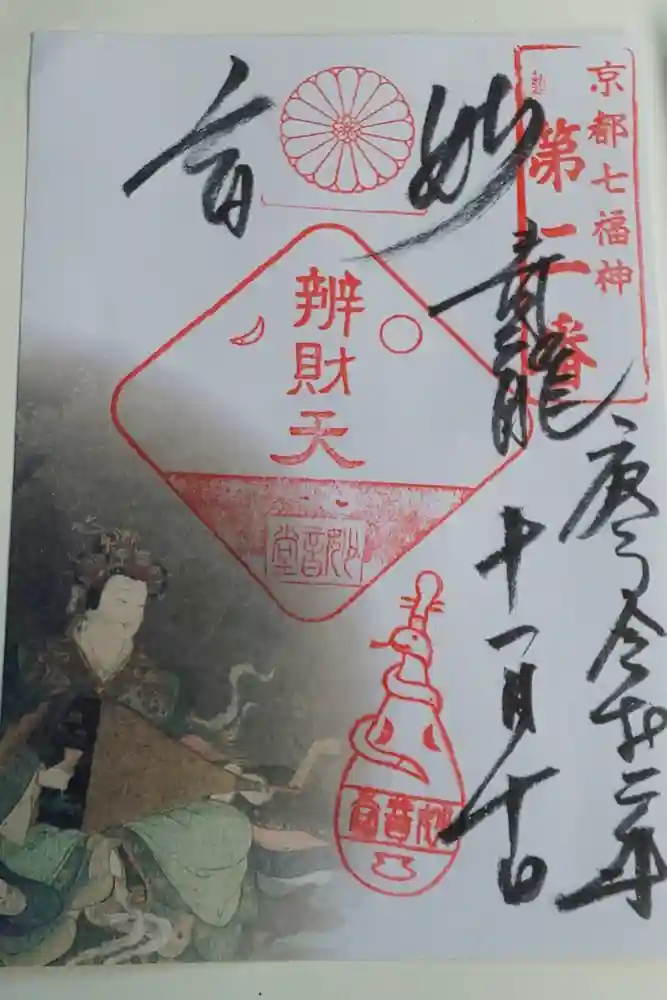 京都七福神
第二番
妙音
青龍
辨財天
妙音堂
庚子令和二年
十一月十日
妙音堂